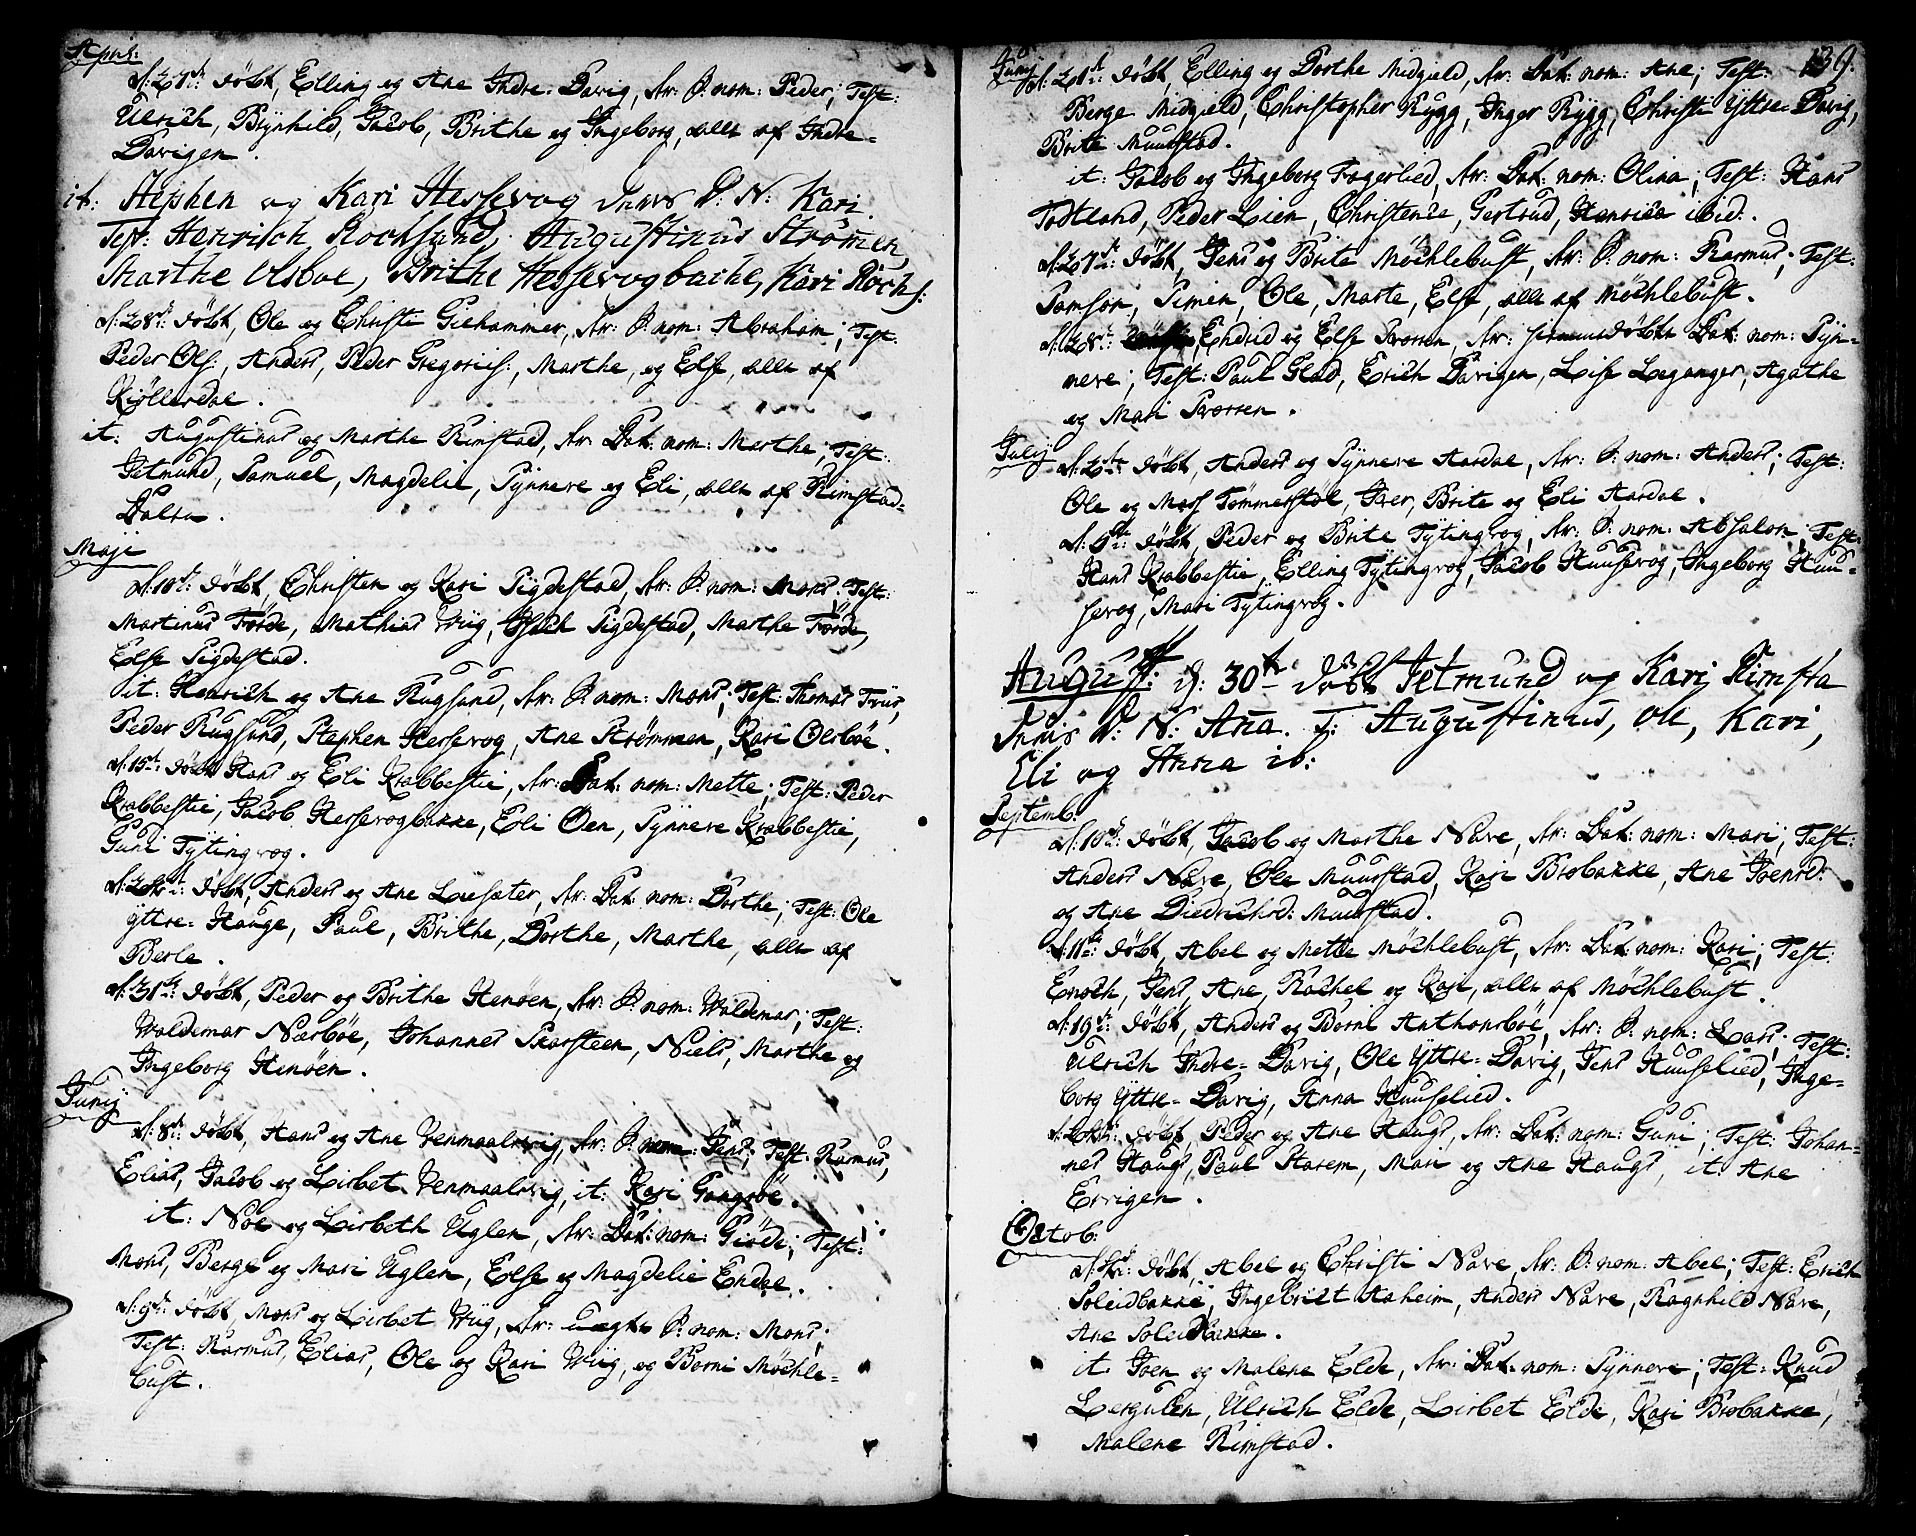 April:
d: 27de døbt, Elling og Ane Indre-Davig, dr: S: nom: Peder; Test:
Ulrich, Brynhild, Jacob, Brithe og Ingeborg, alle af Indre-
Davigen.
it: Stephen og Kari Hessevog deres S: N: Kari.
Test: Henrich Rochsund, Augustinus Strømen,
Marthe Olsboe, Brithe Hessevogbache, Kari Rochs:
d: 28de døbt, Ole og Christi Giehammer, dr: S: nom: Abraham; Test:
Peder Ols:, Anders, Peder Gregoriis:, Marthe, og Else, alle af
Kiøllerdal.
it: Augustinus og Marthe Rimstad, dr: Dat: nom: Marthe; Test:
Jetmund, Samuel, Magdelie, Synneve og Eli, alle af Rimstad-
Dalen.
Maji
d: 10de døbt, Christen og Kari Sigdestad, dr: S: nom: Mons; Test:
Martinus Førde, Mathias Wiig, Isach Sigdestad, Marthe Førde,
Else Sigdestad.
it: Henrich og Ane Rugsund, dr: S: nom: Mons; Test: Thomas Friis,
Peder Rugsund, Stephen Hessevog, Ane Strømmen, Kari Olsbøe.
d: 15de døbt Hans og Eli Krabbestie, dr: Dat: nom: Mette; Test: Peder
Krabbestie, Jacob Hessevogbakke, Eli Øen, Synneve Krabbestie,
Guni Tytingvog.
døbt, Anders og Ane Lusæter, dr: Dat: nom: Dorthe; Test: Ole
yttre-Hauge, Paul, Brithe, Dorthe, Marthe, alle af
Berle.
d: 31de døbt, Peder og Brithe Henøen, dr: S: nom: Waldemar; Test:
Waldemar Nærbøe, Johannes Skarsteen, Niels, Marthe og
Ingeborg Henøen.
Junij
d: 8de døbt, Hans og Ane Venmaalsvig, dr: S: nom: Jens; Test: Rasmus,
Elias, Jacob og Lisbet Venmaalsvig, it: Kari Gangsøe.
it: Noe og Lisbeth Uglen, dr: Dat: nom: Giøde; Test:
Mons, Berge og Mari Uglen, Else og Magdelie Endal.
d: 9de døbt, Mons og Lisbet Wiig, dr: uægte S: nom: Mons;
Test: Rasmus, Elias, Ole og Kari Wiig, og Borni Møchle-
bust.
139.
Junij d: 21de døbt, Elling og Dorthe Midgield, dr: Dat: nom: Ane; Test:
Berge Midgield, Christopher Rygg, Inger Rygg, Christi Yttre-Davig,
Brite Muustad.
it: Jacob og Ingeborg Fagerlied, dr: Dat: nom: Olina; Test: Hans
Todtland, Peder Lien, Christense, Gertrud, Henrica ibid:.
d: 27de døbt, Jens og Brite Møchlebust, dr: S: nom: Rasmus; Test:
Samson, Simen, Ole, Marte, Else, alle af Møchlebust.
d: 28de Endrid og Else Tvorsen, dr: døbte Dat: nom: Syn-
neve; Test: Paul Glad, Erich Davigen, Lise Leganger, Agathe
og Mari Tvorsen.
Julij
døbt, Anders og Synneve Aardal, dr: S: nom: Anders; Test:
Ole og Mari Tømmerstøl, Iver, Brite og Eli Aardal.
døbt, Peder og Brite Tytingvog, dr: S: nom: Absalon; Test:
Hans Krabbestie, Elling Tytingvog, Jacob Huusevog, Ingeborg Huu-
sevog, Mari Tytingvog.
August: d: 30te døbt Jetmund og Kari Rimsta
deres D: N: Ana. T: Augustinus, Ole, Kari,
Eli og Anna ib:
Septemb:
d: 10de døbt, Jacob og Marthe Nave, dr: Dat: nom: Mari; Test:
Anders Nave, Ole Muurstad, Kari Brobakke, Ane Joensd:
og Ane Diedrichsd: Muurstad.
d: 11te døbt, Abel og Mette Møchlebust, dr: Dat: nom: Kari; Test:
Enoch, Jens, Ane, Rachel og Kari, alle af Møchlebust.
d: 19de døbt, Anders og Borni Anthonsbøe, dr: S: nom: Lars; Test:
Ulrich Indre-Davig, Ole Yttre-Davig, Jens Huuselied, Inge-
borg Yttre-Davig, Anna Huuselied.
døbt, Peder og Ane Haugs, dr: Dat: nom: Guni; Test: Johan-
nes Haugs, Paul Starem, Mari og Ane Haugs, it: Ane
Ervigen.
Octob:
døbt, Abel og Christi Nave, dr: S: nom: Abel; Test: Erich
Soleidbakke, Ingebricht Aaheim, Anders Nave, Ragnhild Nave,
Ane Soleidbakke.
it: Joen og Malene Elde, dr: Dat: nom: Synneve; Test: Knud
Lergulen, Ulrich Elde, Lisbet Elde, Kari Brobakke,
Malene Rimstad.